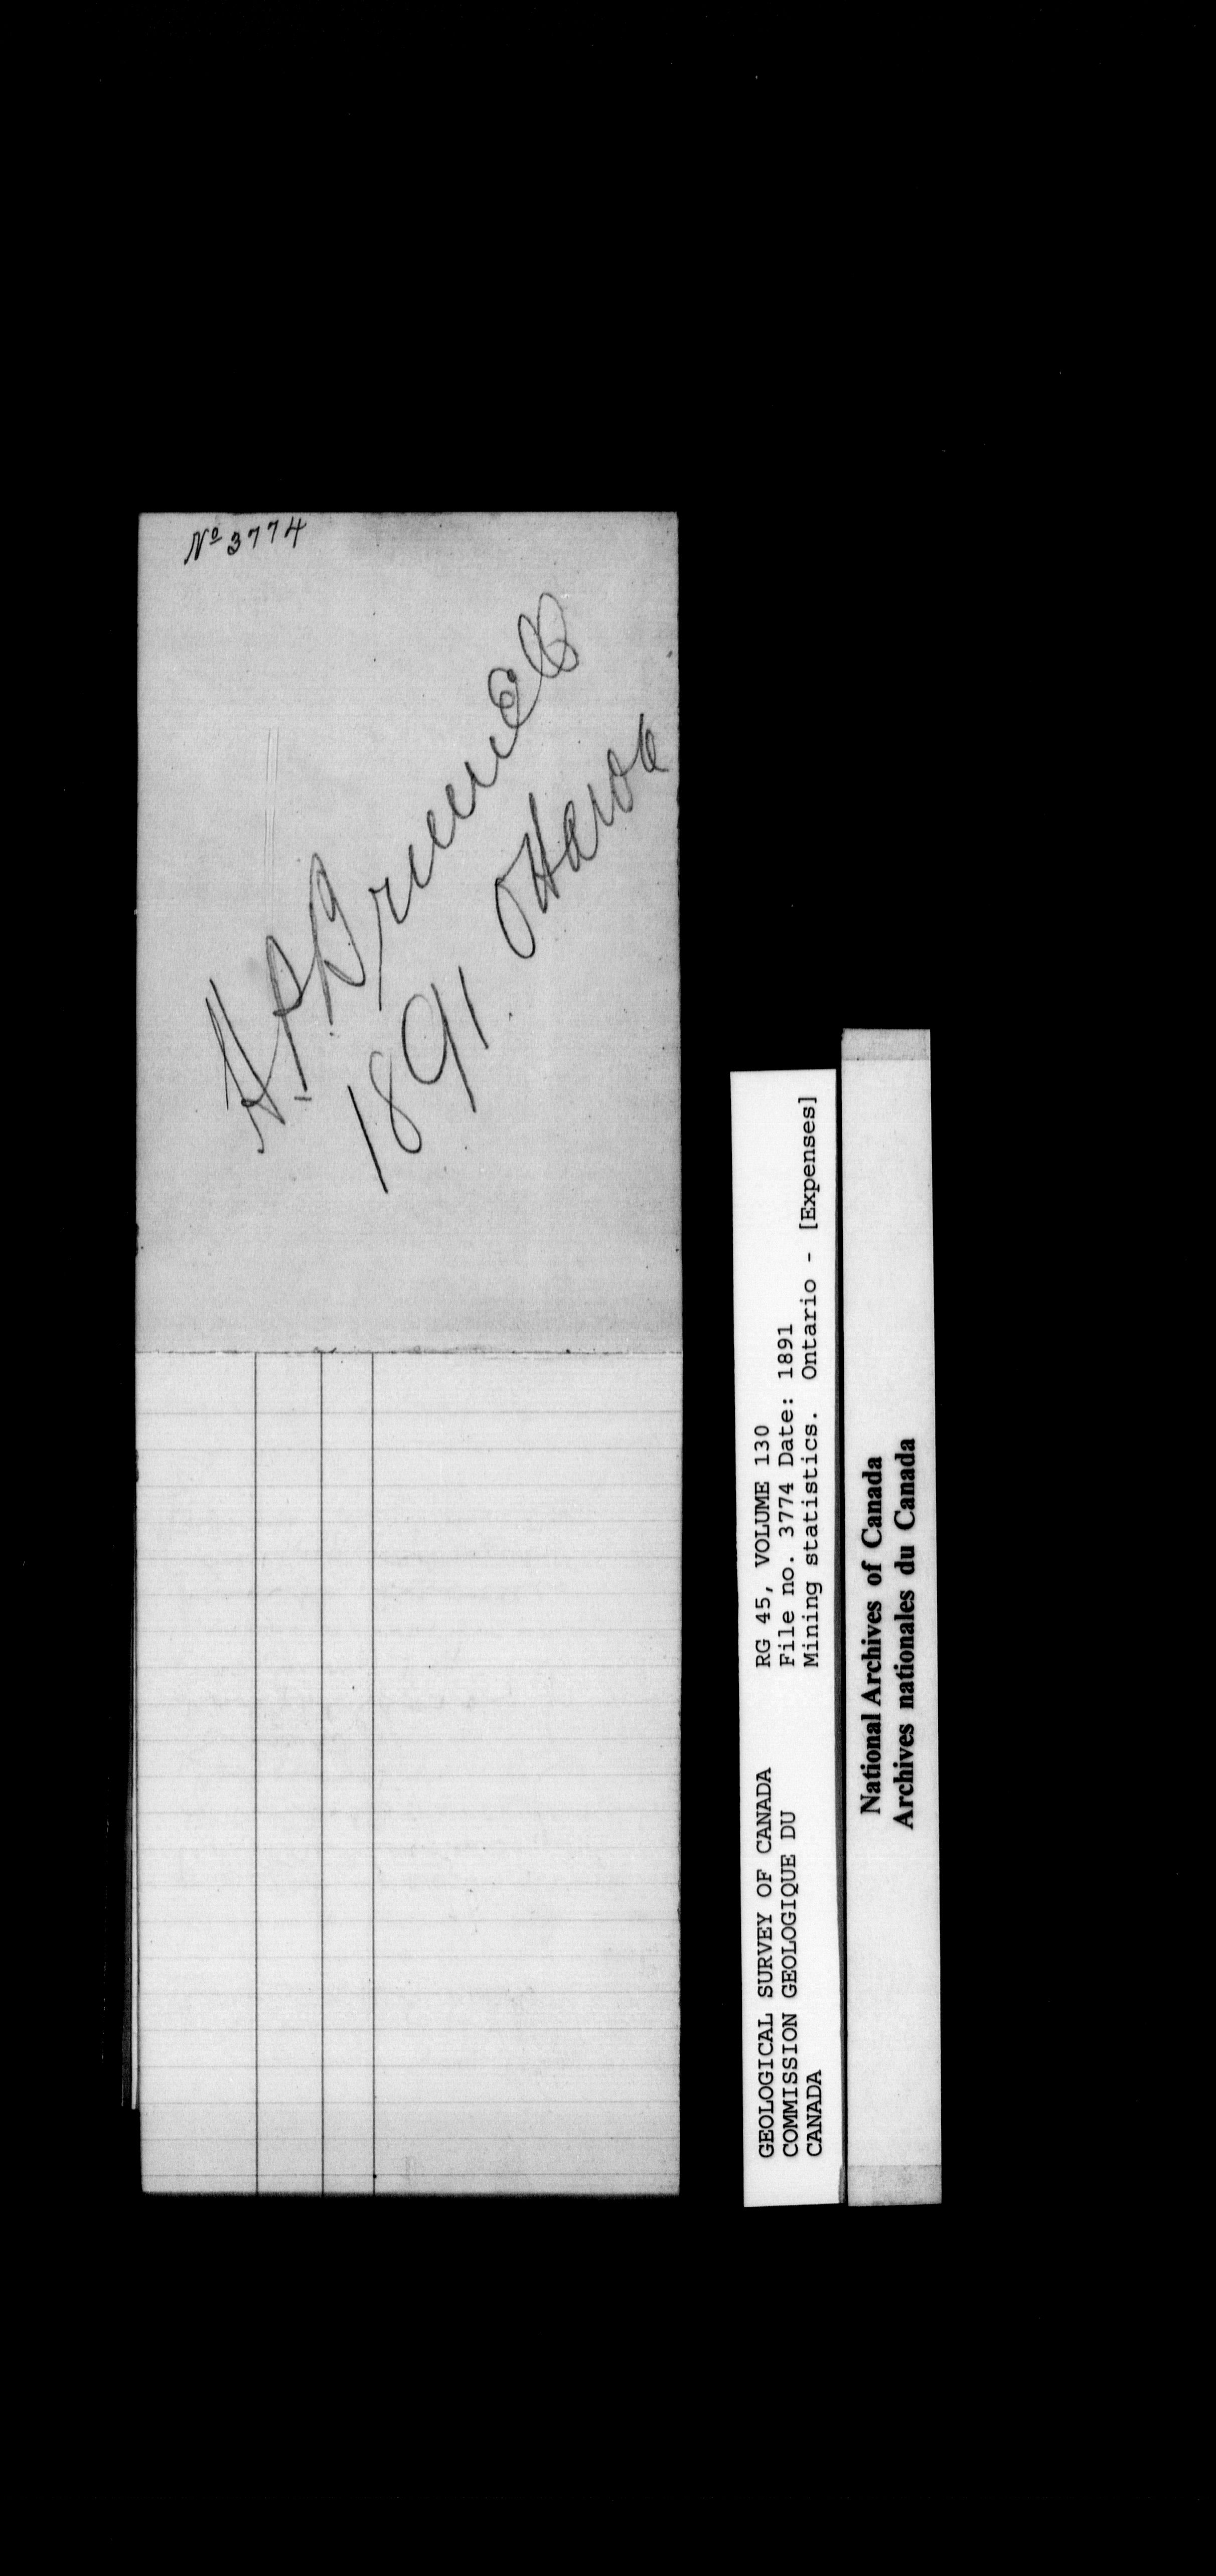 Nº 3774
H.P. Brumell
1891 Ottawa
GEOLOGICAL SURVEY OF CANADA
COMMISSION GEOLOGIQUE DU
CANADA
RG 45, VOLUME 130
File no. 3774 Date: 1891
Mining statistics. Ontario - [Expenses]
National Archives of Canada
Archives nationales du Canada